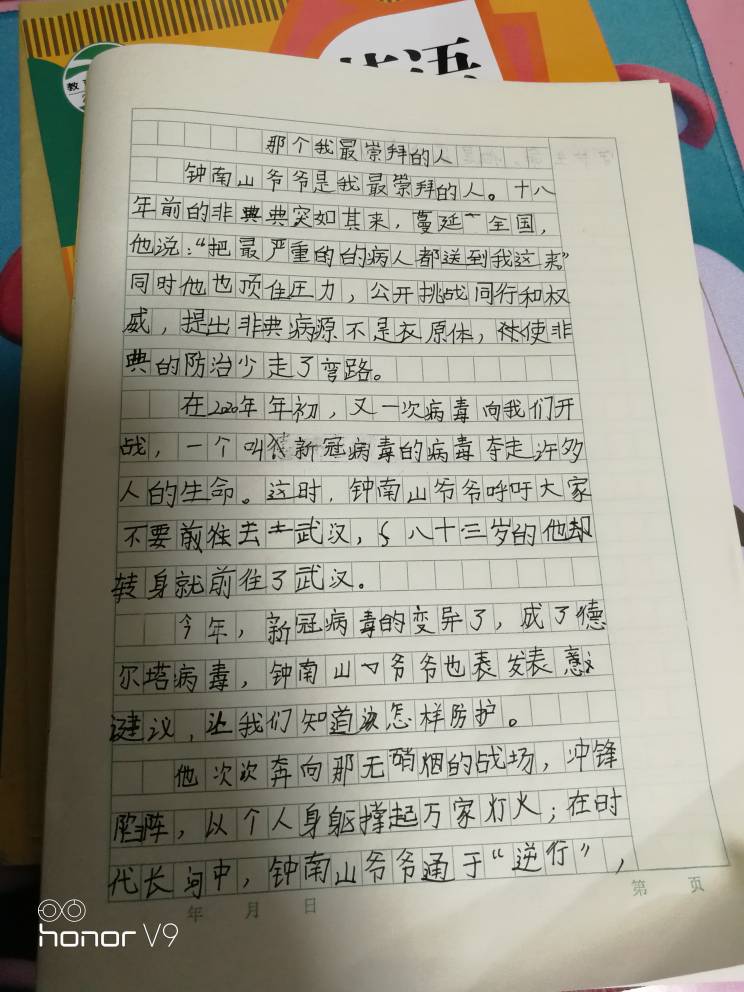 语
教
那个我最崇拜的人
钟南山爷爷是我最崇拜的人。十八
年前的非典典突如其来，蔓延全国，
他说：“把最严重的的病人都送到我这来”
同时他也顶住压力，公开挑战同行和权
威，提出非典病源不是衣原体，使非
典的防治少走了弯路。
在2020年年初，又一次病毒向我们开
战，一个叫新冠病毒的病毒夺走许多
人的生命。这时，钟南山爷爷呼吁大家
不要前往去武汉，八十三岁的他却
转身就前往了武汉。
今年，新冠病毒的变异了，成了德
尔塔病毒，钟南山爷爷也表发表意
建议，让我们知道该怎样防护。
他次次奔向那无硝烟的战场，冲锋
陷阵，以个人身躯撑起万家灯火；在时
代长河中，钟南山爷爷通于“逆行”，
年 月 日
第 页
honor V9